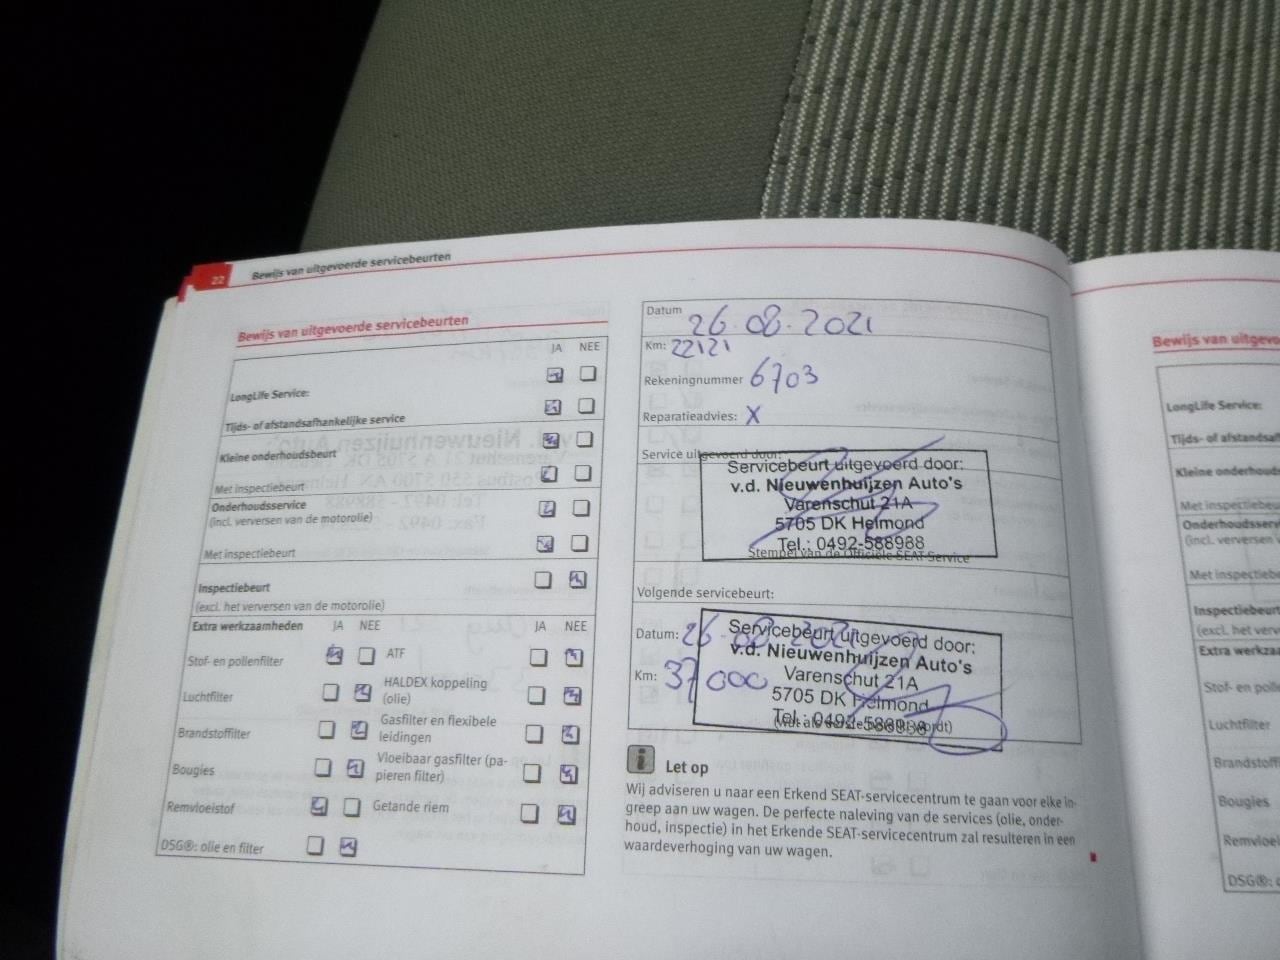 22 Bewijs van uitgevoerde servicebeurten
Bewijs van uitgevoerde servicebeurten
JA NEE
LongLife Service:
Tijds- of afstandsafhankelijke service
Kleine onderhoudsbeurt
Met inspectiebeurt
Onderhoudsservice
(incl. verversen van de motorolie)
Met inspectiebeurt
Inspectiebeurt
(excl. het verversen van de motorolie)
Extra werkzaamheden JA NEE JA NEE
Stof- en pollenfilter ATF
Luchtfilter HALDEX koppeling
(olie)
Brandstoffilter Gasfilter en flexibele
leidingen
Bougies Vloeibaar gasfilter (pa-
pieren filter)
Remvloeistof Getande riem
DSG®: olie en filter
Datum 26-08-2021
Km: 22121
Rekeningnummer 6703
Reparatieadvies: X
Service uitgevoerd door:
Servicebeurt uitgevoerd door:
v.d. Nieuwenhuijzen Auto's
Varenschut 21A
5705 DK Helmond
Tel.: 0492-588988
Stempel van de Officiële SEAT-Service
Volgende servicebeurt:
Datum: 26-08
Km: 37000
Servicebeurt uitgevoerd door:
v.d. Nieuwenhuijzen Auto's
Varenschut 21A
5705 DK Helmond
Tel.: 0492-588988
Let op
Wij adviseren u naar een Erkend SEAT-servicecentrum te gaan voor elke in-
greep aan uw wagen. De perfecte naleving van de services (olie, onder-
houd, inspectie) in het Erkende SEAT-servicecentrum zal resulteren in een
waardeverhoging van uw wagen.
Bewijs van uitgevo
LongLife Service:
Tijds- of afstandsaf
Kleine onderhouds
Met inspectiebeu
Onderhoudsserv
(incl. verversen v
Met inspectiebe
Inspectiebeurt
(excl. het verve
Extra werkza
Stof- en pol
Luchtfilter
Brandstoffi
Bougies
Remvloei
DSG®: o